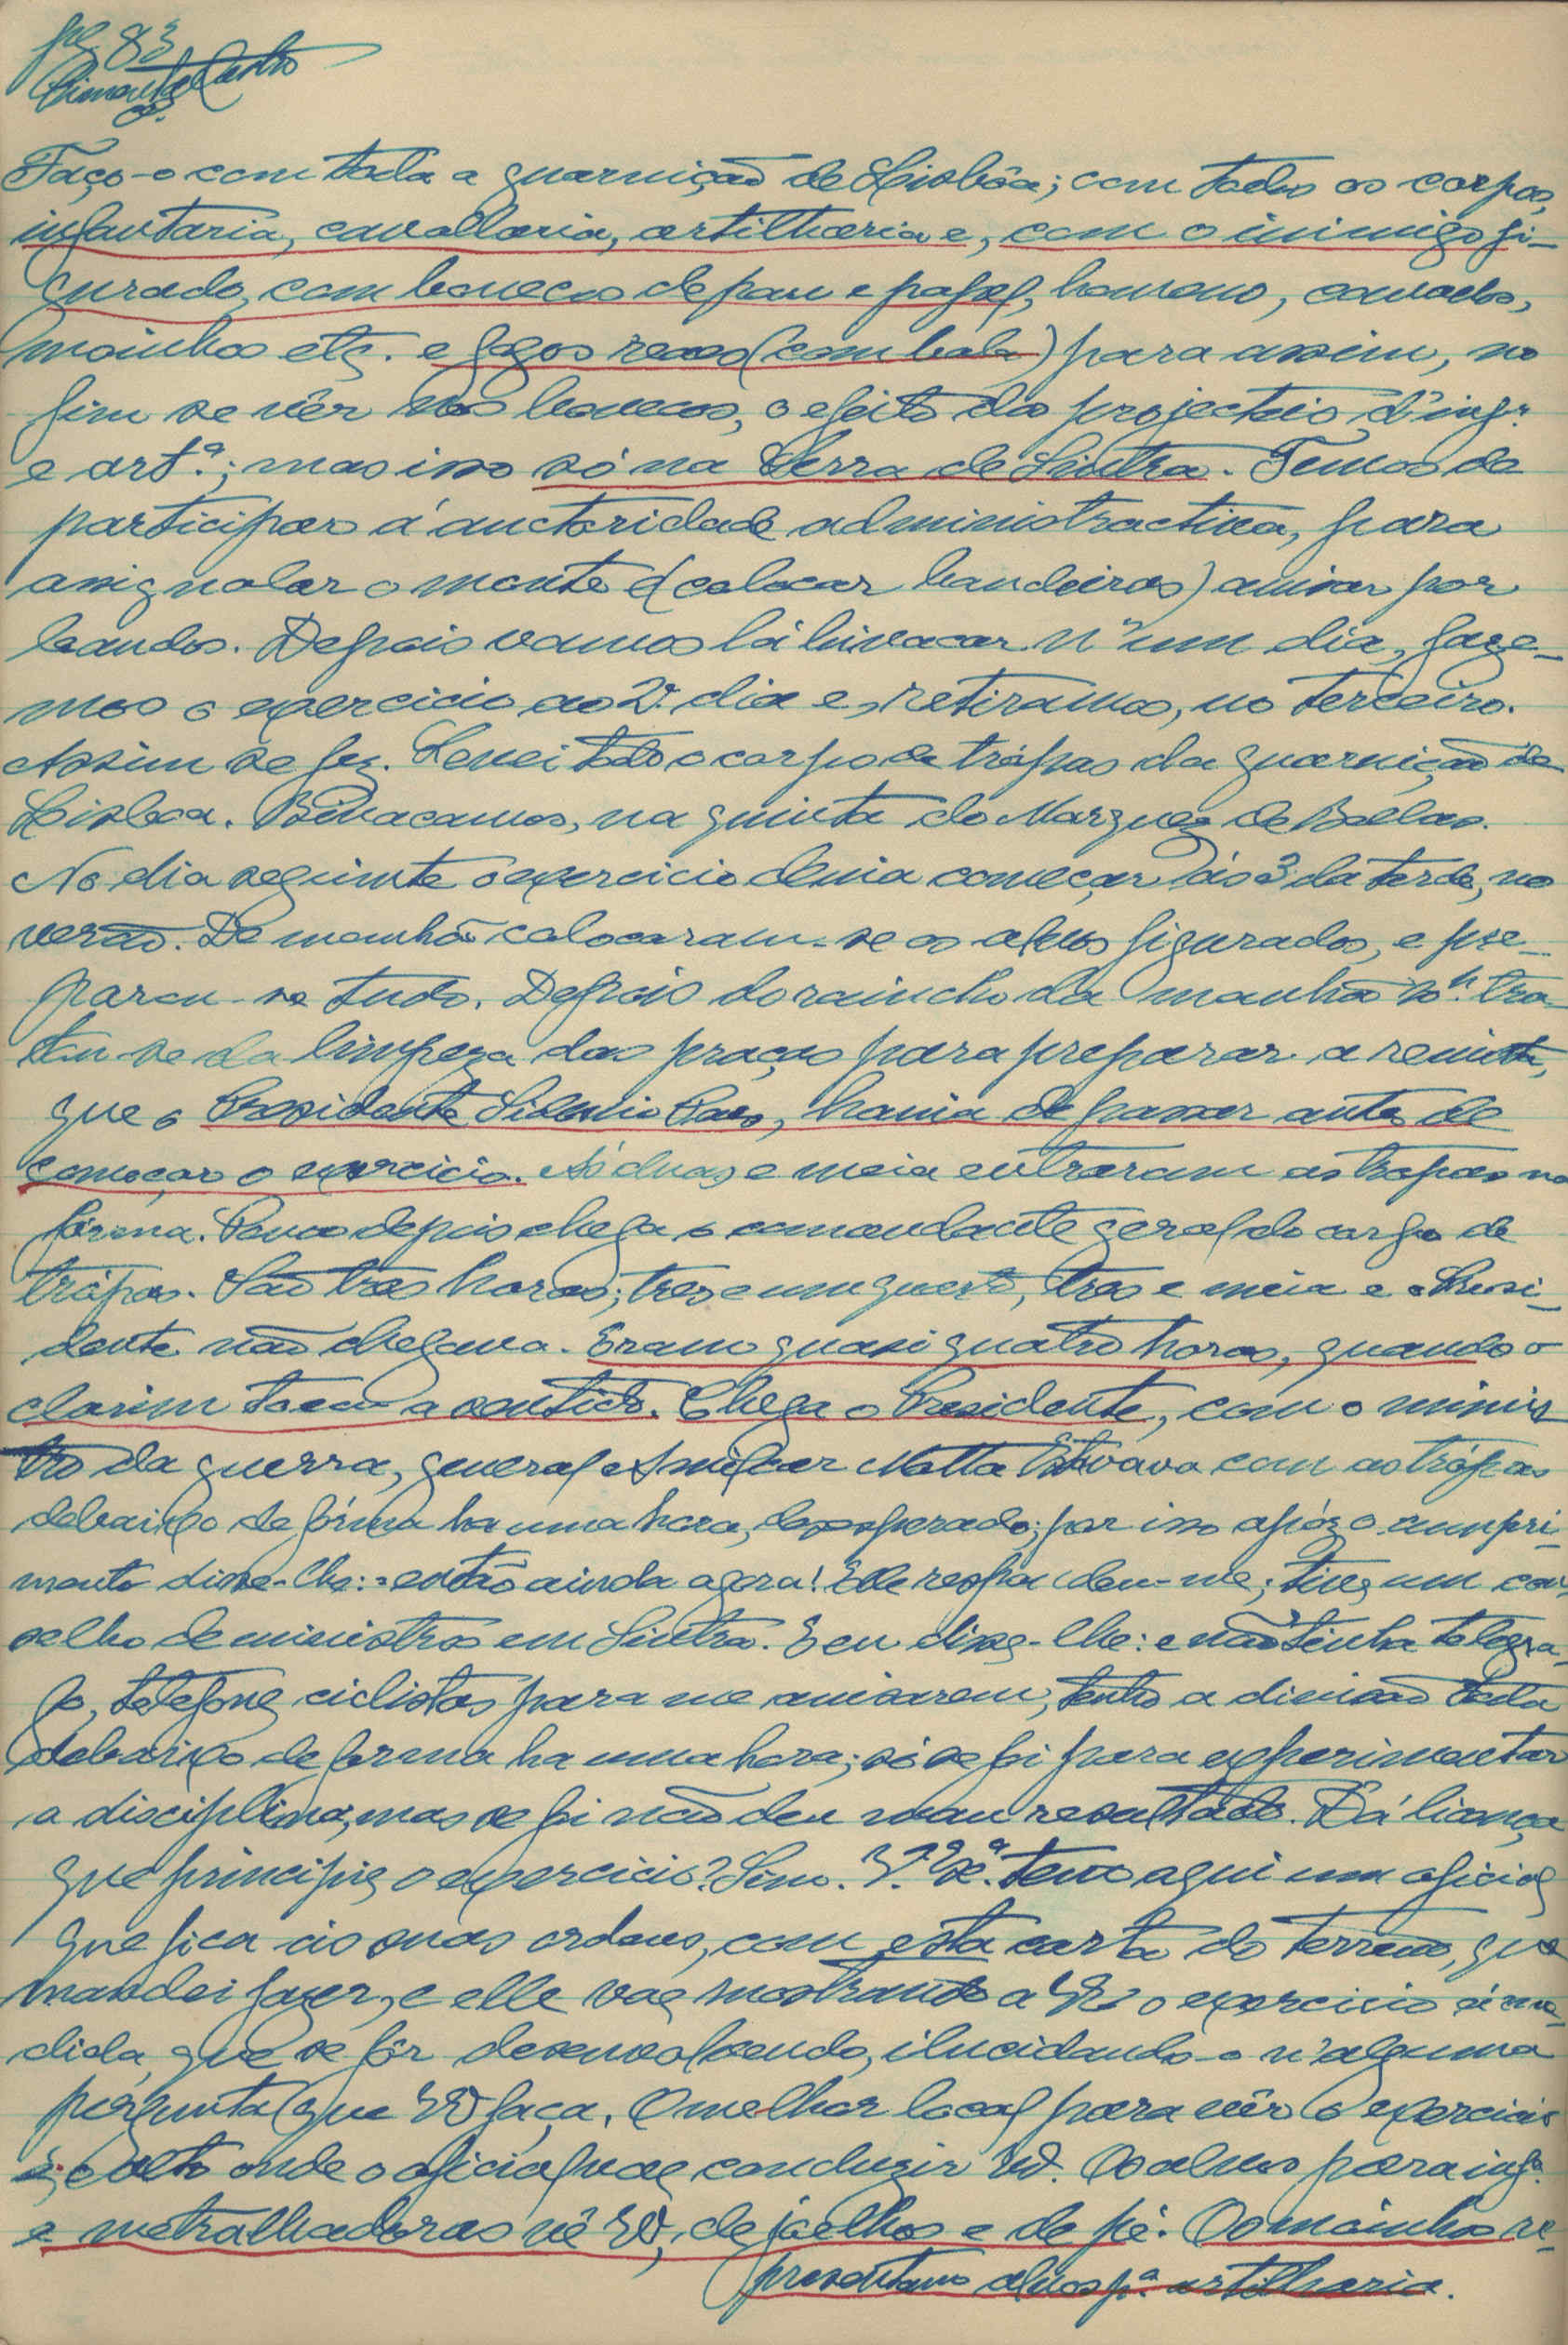 pg. 83
Simas de Castro
Faço-o com toda a guarnição de Lisbôa; com todos os corpos,
infantaria, cavallaria, artilharia e, com o inimigo fi-
gurado, com bonecos de pau e papel, homens, cavalos,
moinhos etc. e fogos reaes (com bala) para assim, no
fim se vêr nos bonecos, o efeito dos projecteis d'inf.ª
e art.ª; mas isso só na Serra de Sintra. Temos de
participar á auctoridade administractiva, para
assignalar o monte e (colocar bandeiras) avisar por
bandos. Depois vamos lá bivacar n'um dia, faze-
mos o exercicio ao 2.º dia e, retiramos, no terceiro.
Assim se fez. Levei todo o corpo de trópas da guarnição de
Lisboa. Bivacamos, na quinta do Marquez de Bellas.
No dia seguinte o exercicio devia começar ás 3 da tarde, no
verão. De manhã colocaram-se os alvos figurados, e pre-
parou-se tudo. Depois do rancho da manhã 10h. tra-
tou-se da limpeza das praças para preparar a revista,
que o Presidente Sidonio Paes, havia de passar antes de
começar o exercicio. Ás duas e meia entraram as tropas na
fórma. Pouco depois chega o comandante geral do corpo de
trópas. São tres horas; tres e um quarto, tres e meia e o Presi-
dente não chegava. Eram quasi quatro horas, quando o
clarim tocou a sentido. Chega o Presidente, com o minis
tro da guerra, general Amilcar Motta Estava com as trópas
debaixo de fórma ha uma hora, desesperado; por isso após o cumpri-
mento disse-lhe: = então ainda agora! Elle respondeu-me; tive um con-
selho de ministros em Sintra. E eu disse-lhe: e não tinha telegra-
fo, telefone, ciclistas para me avisarem, tenho a divisão toda
debaixo de forma ha uma hora; só se foi para experimentar
a disciplina, mas se foi não deu mau resultado. Dá licença
que principie o exercicio? Sim. V.ª Ex.ª tem aqui um oficial
que fica ás suas ordens, com esta carta do terreno, que
mandei fazer, e elle vae mostrando a VEx o exercicio á me-
dida, que se fôr desenvolvendo, ilucidando-o n'alguma
pergunta que VEx faça. O melhor local para vêr o exercicio
é; o alto onde o oficial vae conduzir VEx. Os alvos para inf.ª
e metralhadoras vê VEx, de joelhos e de pé. Os moinhos re-
presentam alvos p.ª artilharia.